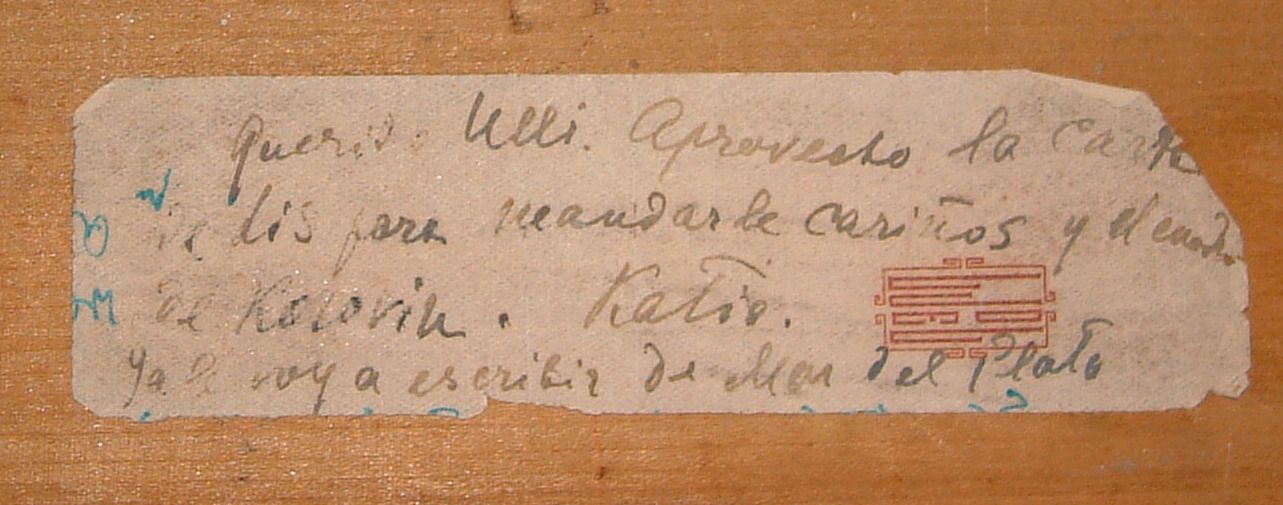 Querido Ulli. Aprovecho la carta
de Lis para mandarle cariños y el cuadro
de Korovin. Katia.
Ya le voy a escribir de Mar del Plata